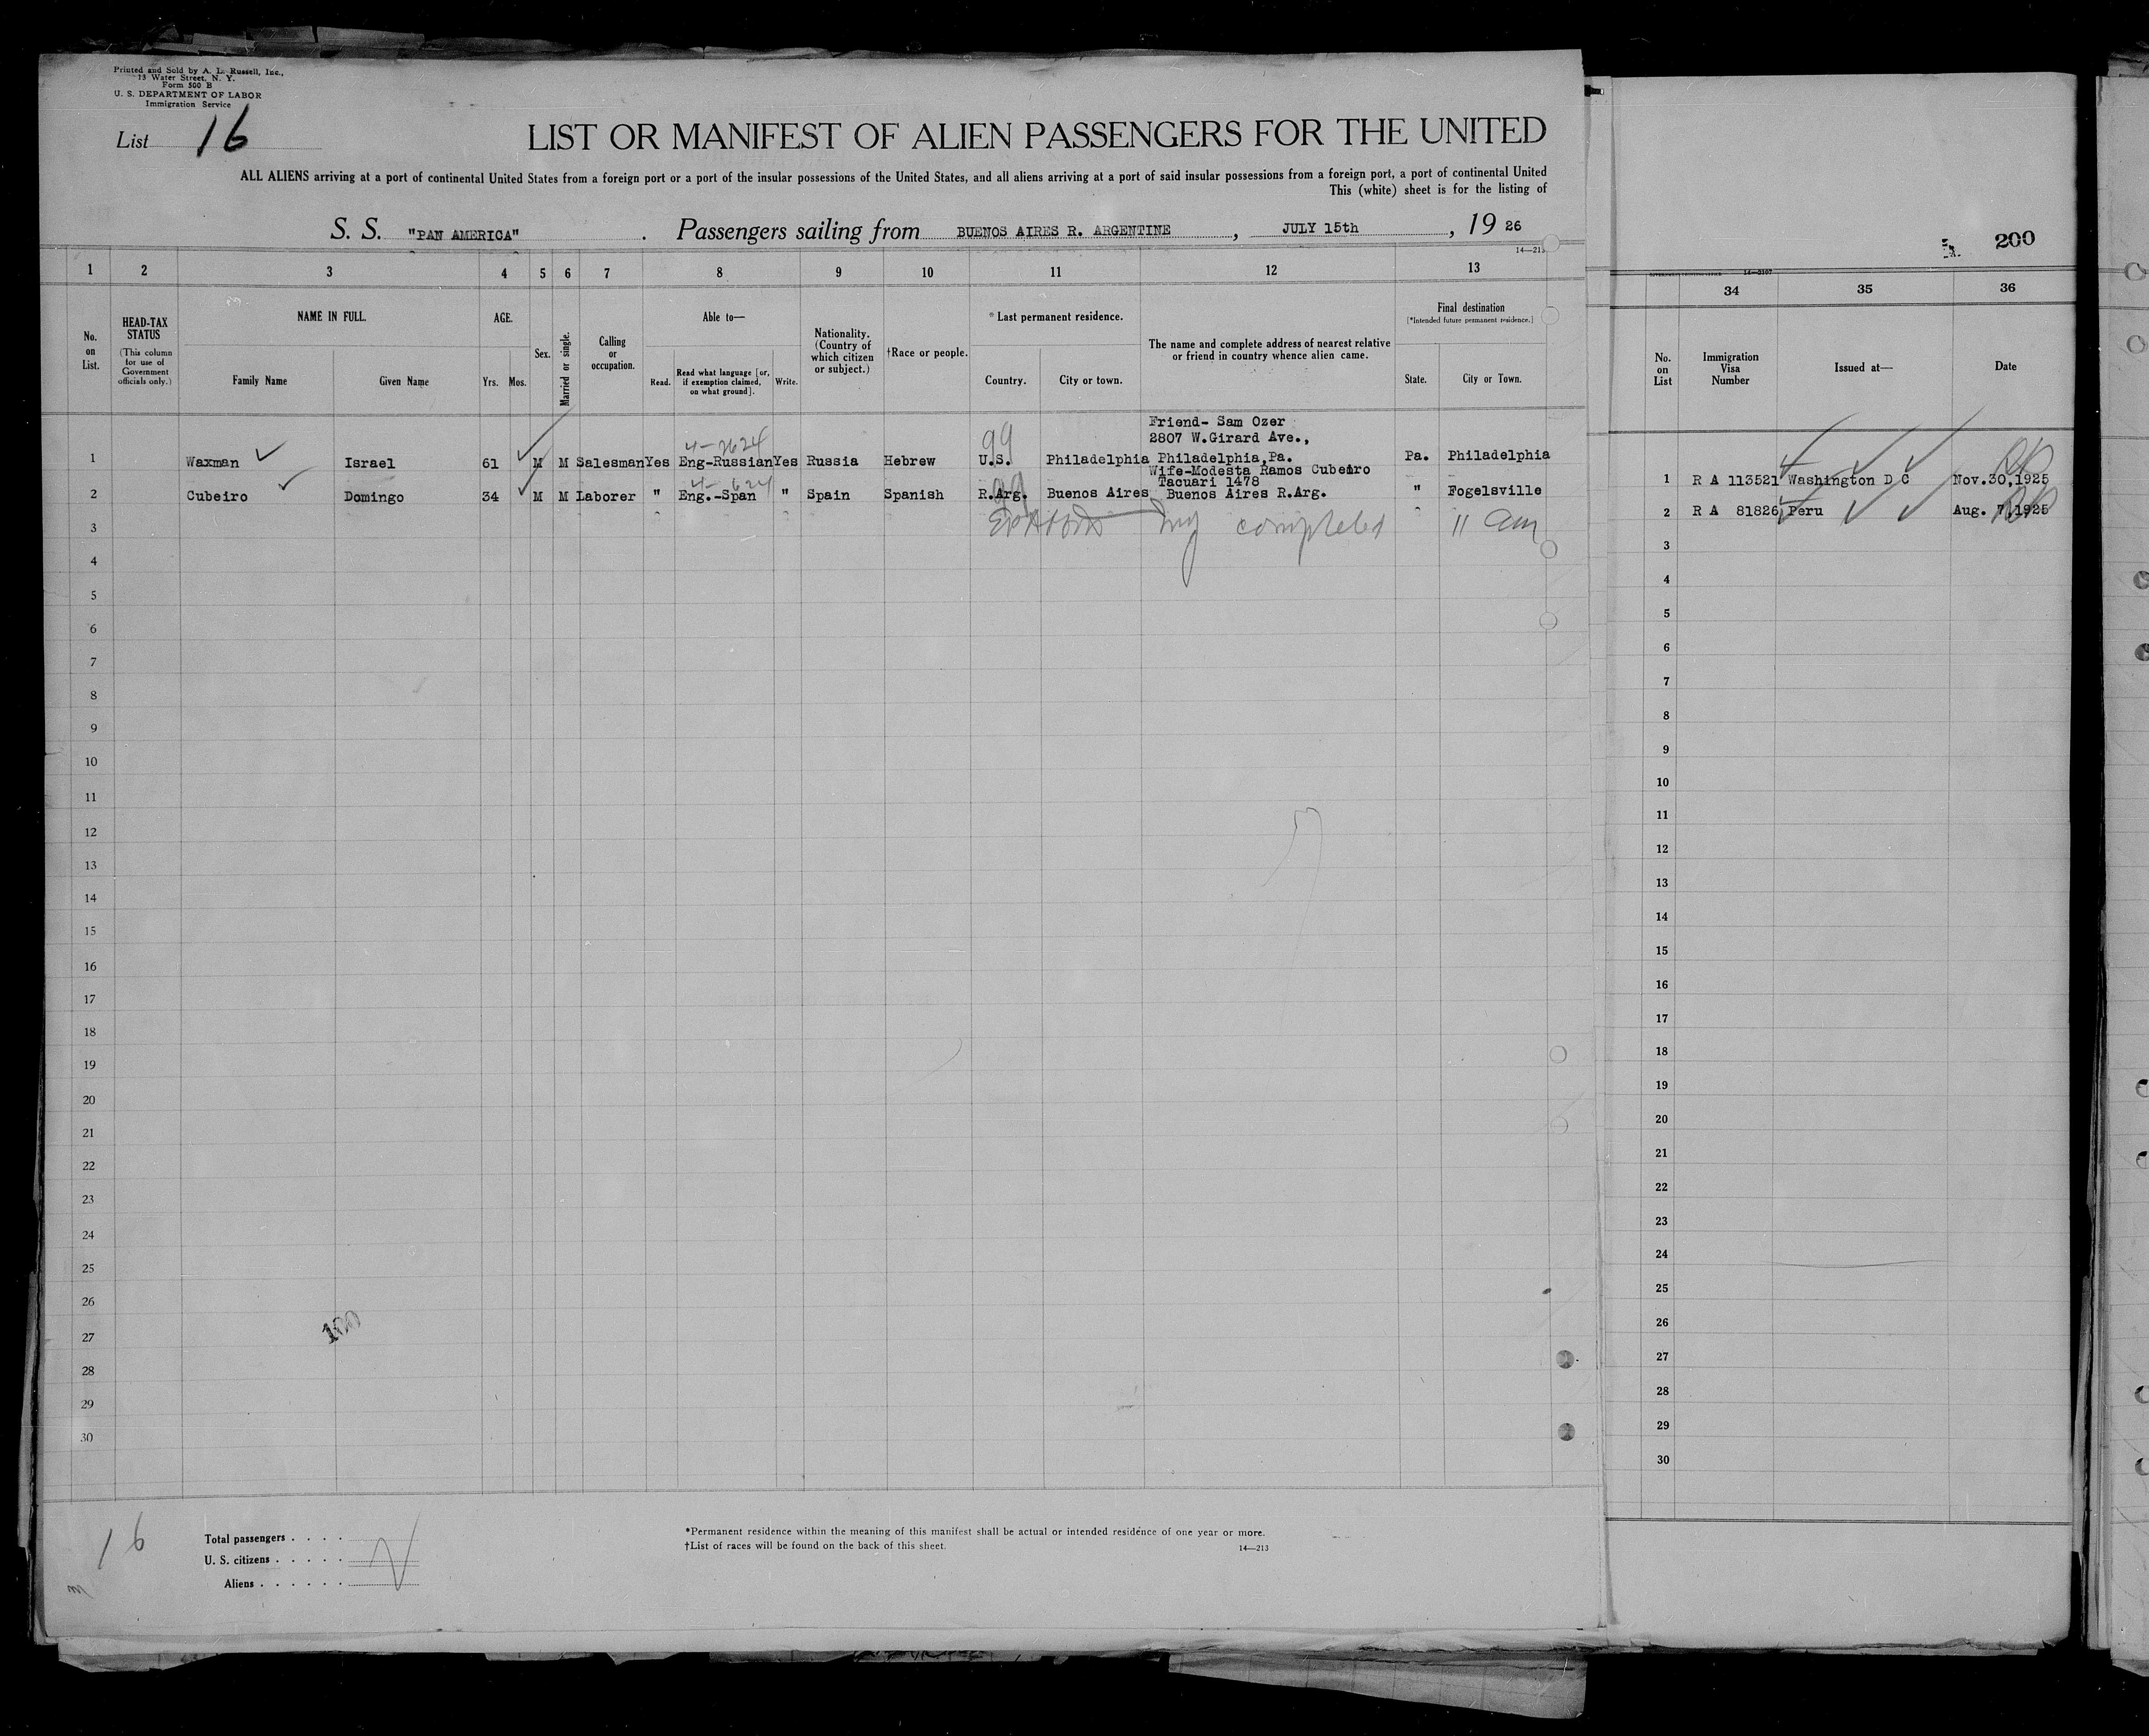 Printed and Sold by A. L. Russell, Inc.,
13 Water Street, N. Y.
Form 500 B
U. S. DEPARTMENT OF LABOR
Immigration Service
List 16
LIST OR MANIFEST OF ALIEN PASSENGERS FOR THE UNITED
ALL ALIENS arriving at a port of continental United States from a foreign port or a port of the insular possessions of the United States, and all aliens arriving at a port of said insular possessions from a foreign port, a port of continental United
This (white) sheet is for the listing of
S. S. "PAN AMERICA". Passengers sailing from BUENOS AIRES R. ARGENTINE, JULY 15th, 19 26
14—213
200
1 2 3 4 5 6 7 8 9 10 11 12 13
34 35 36
No. on List.
HEAD-TAX STATUS
(This column for use of Government officials only.)
NAME IN FULL.
Family Name
Given Name
AGE.
Yrs. Mos.
Sex.
Married or single.
Calling or occupation.
Able to—
Read.
Read what language [or, if exemption claimed, on what ground].
Write.
Nationality. (Country of which citizen or subject.)
†Race or people.
*Last permanent residence.
Country.
City or town.
The name and complete address of nearest relative or friend in country whence alien came.
Final destination
[*Intended future permanent residence.]
State.
City or Town.
No. on List
Immigration Visa Number
Issued at—
Date
Friend- Sam Ozer
2807 W.Girard Ave.,
99
4-2624
1 Waxman Israel 61 M M Salesman Yes Eng-Russian Yes Russia Hebrew U.S. Philadelphia Philadelphia,Pa. Pa. Philadelphia
1 R A 113521 Washington D C Nov.30,1925
Wife-Modesta Ramos Cubeiro
Tacuari 1478
99
2 Cubeiro Domingo 34 M M Laborer " Eng.-Span " Spain Spanish R.Arg. Buenos Aires Buenos Aires R.Arg. " Fogelsville
2 R A 81826 Peru Aug. 7,1925
3 completed 11 am
3
4
5
6
7
8
9
10
11
12
13
14
15
16
17
18
19
20
21
22
23
24
25
26
27
28
29
30
3
4
5
6
7
8
9
10
11
12
13
14
15
16
17
18
19
20
21
22
23
24
25
26
27
28
29
30
100
16
Total passengers . . . .
U. S. citizens . . . . .
Aliens . . . . . .
*Permanent residence within the meaning of this manifest shall be actual or intended residence of one year or more.
†List of races will be found on the back of this sheet.
14—213